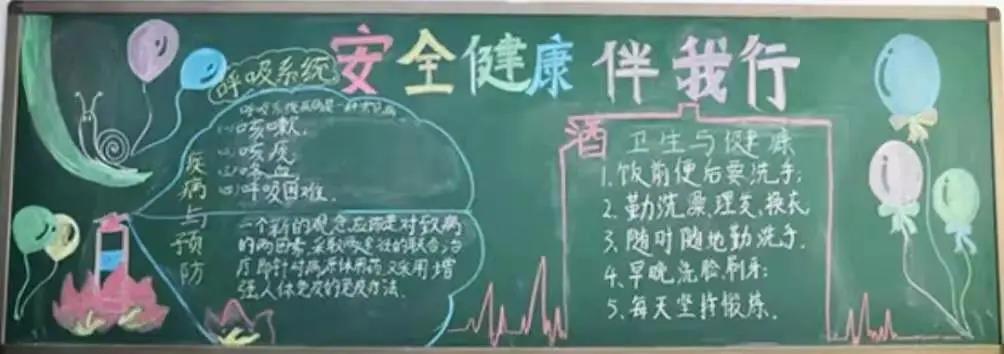 安全健康伴我行
呼吸系统
疾病与预防
呼吸系统疾病是一种常见病
(1)咳嗽.
(2)咳痰.
(3)咯血.
(4)呼吸困难.
一个新的观念应该是对致病
的两因素,采取两
疗即针对病原体用药又采用增
强人体免疫的免疫疗法.
酒
卫生与健康
1.饭前便后要洗手;
2.勤洗澡、理发、换衣
3.随时随地勤洗手.
4.早晚洗脸、刷牙;
5、每天坚持锻炼.